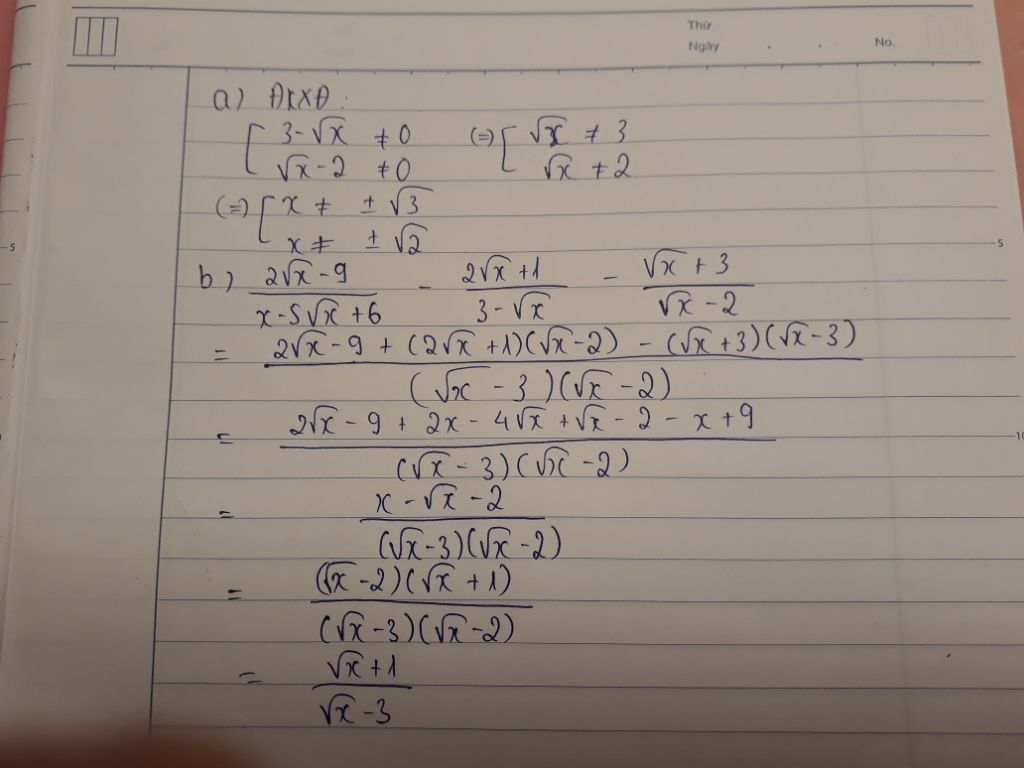 Thứ
Ngày . . No.
a) ĐKXĐ:
[ 3-√x ≠0 (=) [ √x ≠ 3
√x-2 ≠0 √x ≠2
(=) [ x ≠ ±√3
x≠ ±√2
5 5
b) (2√x-9)/(x-5√x+6) - (2√x+1)/(3-√x) - (√x+3)/(√x-2)
= (2√x-9+(2√x+1)(√x-2) - (√x+3)(√x-3))/((√x-3)(√x-2))
= (2√x-9+2x-4√x+√x-2-x+9)/((√x-3)(√x-2))
10
= (x-√x-2)/((√x-3)(√x-2))
= ((√x-2)(√x+1))/((√x-3)(√x-2))
= (√x+1)/(√x-3)